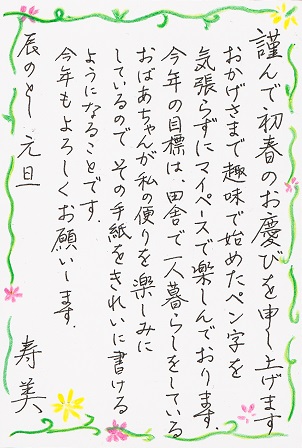 謹んで初春のお慶びを申し上げます
おかげさまで趣味で始めたペン字を
気張らずにマイペースで楽しんでおります.
今年の目標は、田舎で一人暮らしをしている
おばあちゃんが私の便りを楽しみに
しているので その手紙をきれいに書ける
ようになることです.
今年もよろしくお願いします.
辰のとし 元旦
寿美